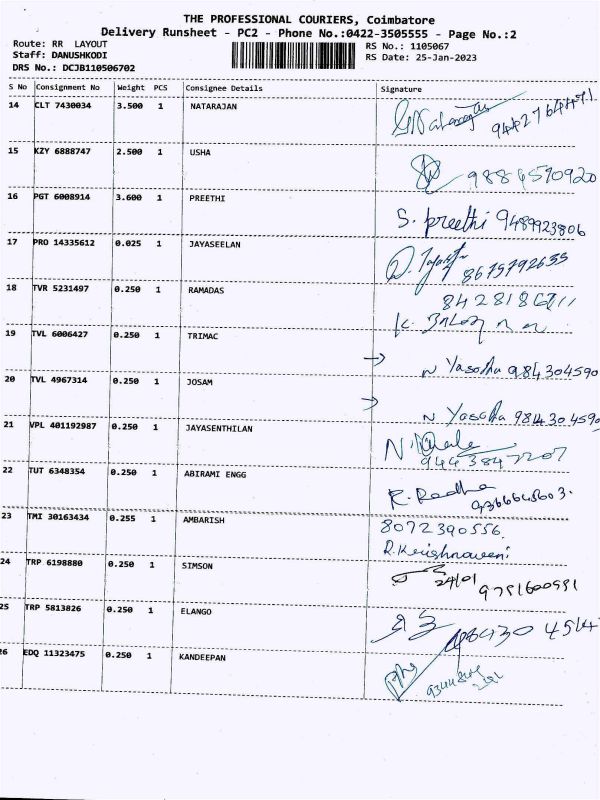 THE PROFESSIONAL COURIERS, Coimbatore
Delivery Runsheet - PC2 - Phone No.:0422-3505555 - Page No.:2
Route: RR LAYOUT
RS No.: 1105067
Staff: DANUSHKODI
RS Date: 25-Jan-2023
DRS No.: DCJB110506702
S No Consignment No Weight PCS Consignee Details Signature
14 CLT 7430034 3.500 1 NATARAJAN
15 KZY 6888747 2.500 1 USHA 9884570920
16 PGT 6008914 3.600 1 PREETHI S. preethi 9489923806
17 PRO 14335612 0.025 1 JAYASEELAN 8675792655
18 TVR 5231497 0.250 1 RAMADAS
19 TVL 6006427 0.250 1 TRIMAC → N Yasodha 984304590
20 TVL 4967314 0.250 1 JOSAM → N Yasodha 984304590
21 VPL 401192987 0.250 1 JAYASENTHILAN
22 TUT 6348354 0.250 1 ABIRAMI ENGG R. Radha
23 TMI 30163434 0.255 1 AMBARISH 8072390556
R. Krishnaveni
24 TRP 6198880 0.250 1 SIMSON 24/01
25 TRP 5813826 0.250 1 ELANGO
26 EDQ 11323475 0.250 1 KANDEEPAN